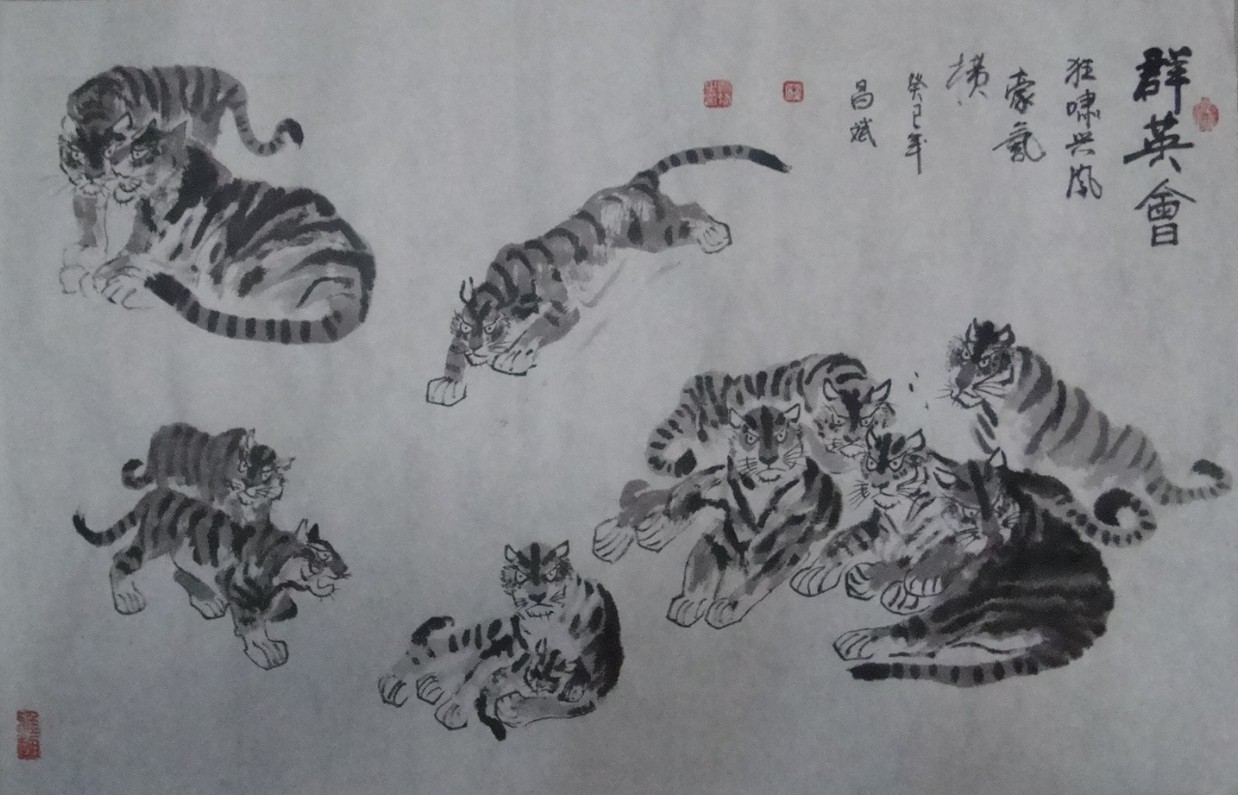 群英會
狂嘯兴风
豪氣
横
癸巳年
昌斌